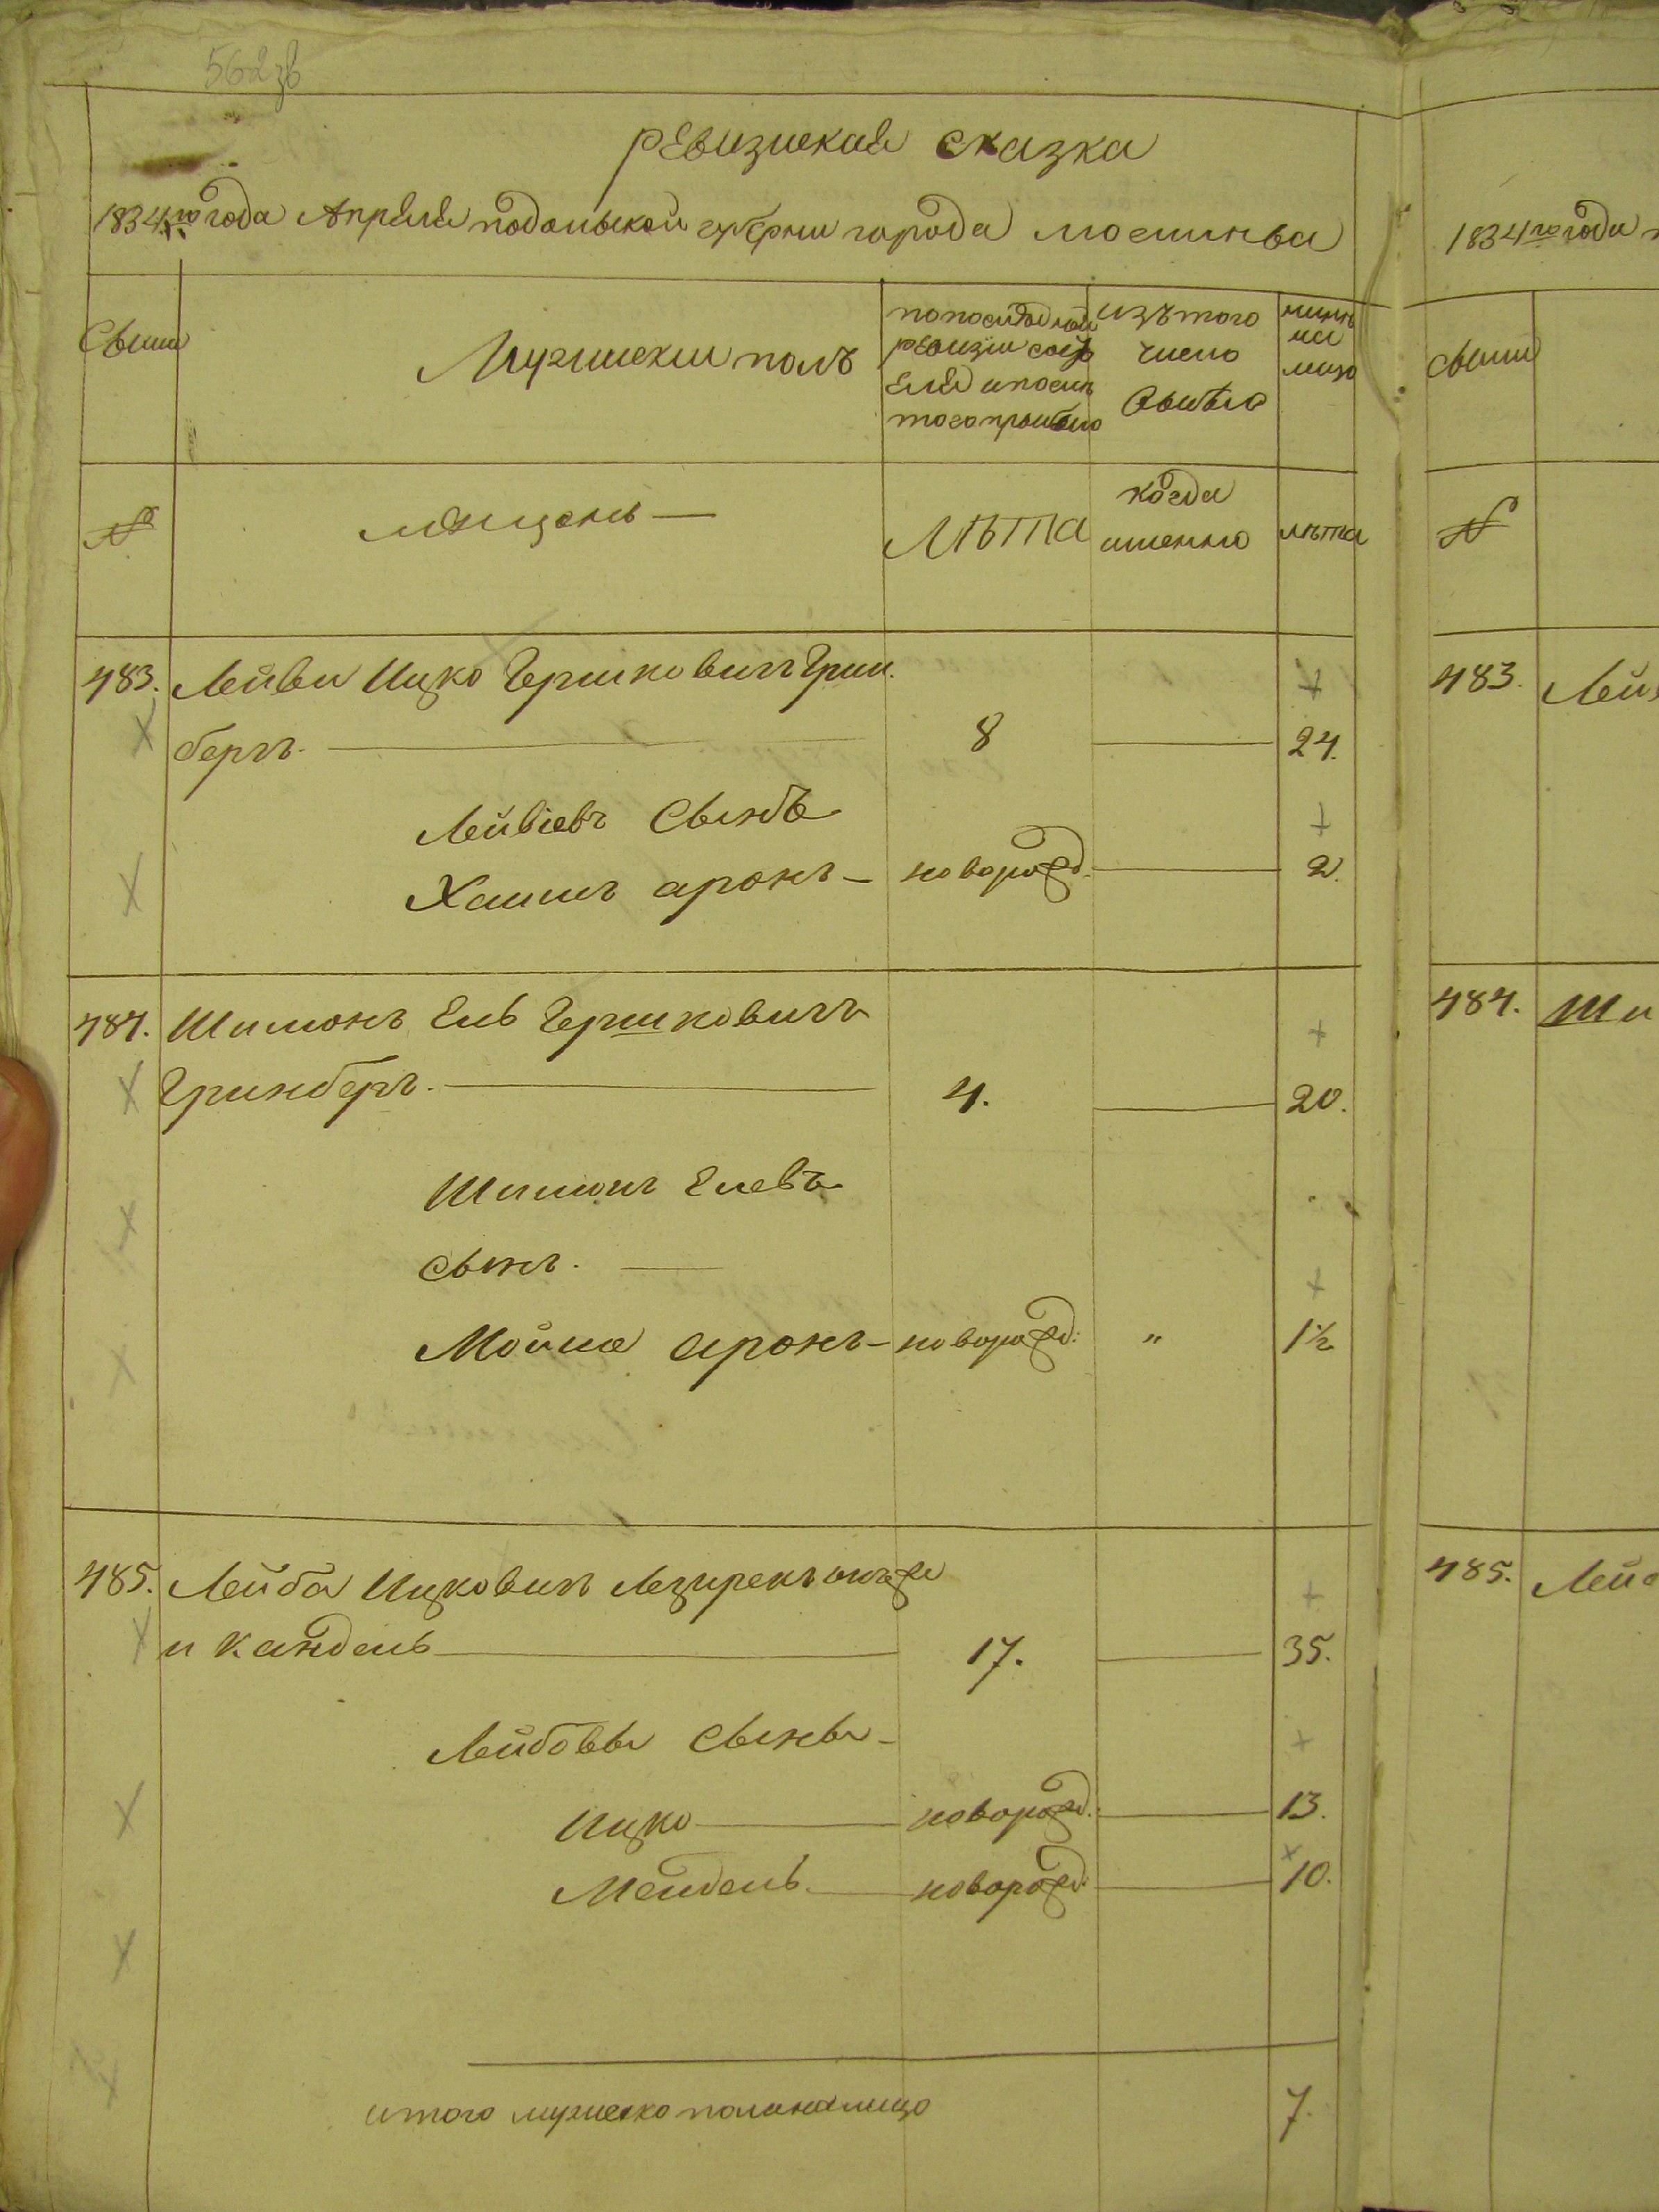 562 зв
ревизская сказка
1834го года Апреля подольской губерни города могилева
Семии
Мужнески полъ
по последней
ревизии состо
яло и после
того прибыло
изъ того
число
выбыло
ныне
на
лицо
№
мещене —
Лѣта
когда
именно
лѣта
483. Лейви Ицко Гершковичъ Грин.
бергъ. 8 24.
Лейвiевъ Сынъ
Хаимъ аронъ — новорожд. 2.
484. Шимонъ Ель Гершковичъ
Гринбергъ. 4. 20.
Шимон Елевъ
сынъ.
Мойше аронъ — новорожд: " 1½
485. Лейба Ицковичъ онъже
и Кандель 17. 35.
Лейбовы Сыновя —
Ицко новорожд. 13.
Мендель. новорожд: 10.
итого мужеско пола налицо 7.
1834го года
семии
№
483. Лей
484. Ши
485. Лей